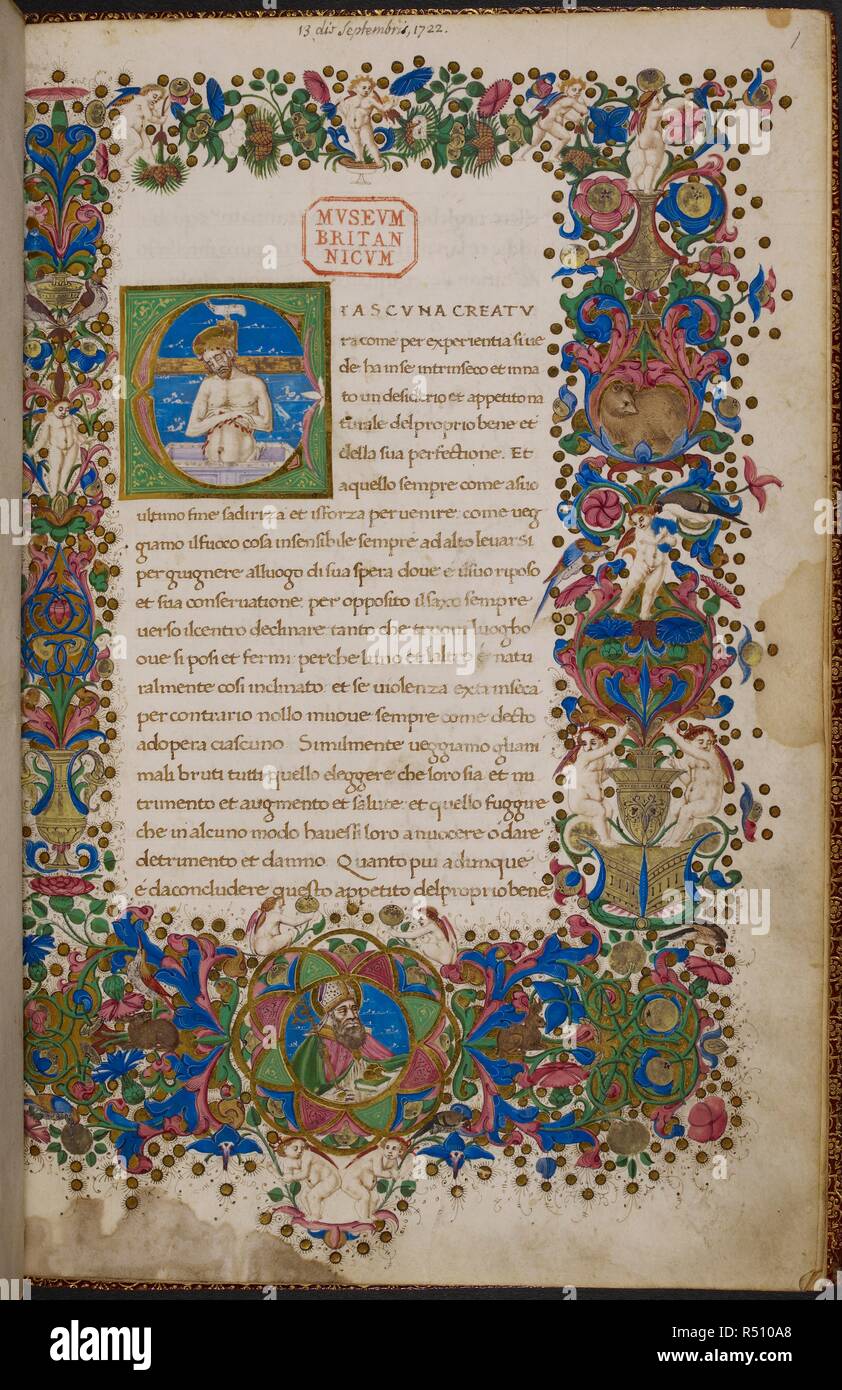 13 die Septembris, 1722.
1
MVSEVM
BRITAN
NICVM
IASCVNA CREATV
ra come per experientia si ve
de ha in se intrinseco et inna
to un desiderio et appetito na
turale del proprio bene et
della sua perfectione. Et
a quello sempre come a suo
ultimo fine sadiriza et isforza pervenire: come veg
giamo il fuoco cosa insensibile sempre ad alto levarsi
per guignere al luogo di sua spera dove e il suo riposo
et sua conservatione: per opposito il saxo sempre
verso il centro declinare tanto che truovi luogho
ove si posi et fermi: perche luno et laltro é natu
ralmente cosi inclinato: et se violenza extrinseca
per contrario nollo muove sempre come decto
adopera ciascuno. Similmente veggiamo gliani
mali bruti tutti quello eleggere che loro sia et nu
trimento et augmento et salute: et quello fuggire
che in alcuno modo havessi loro a nuocere o dare
detrimento et danno. Quanto piu adunque
é da concludere questo appetito del proprio bene
alamy
Image ID: R510A8
www.alamy.com